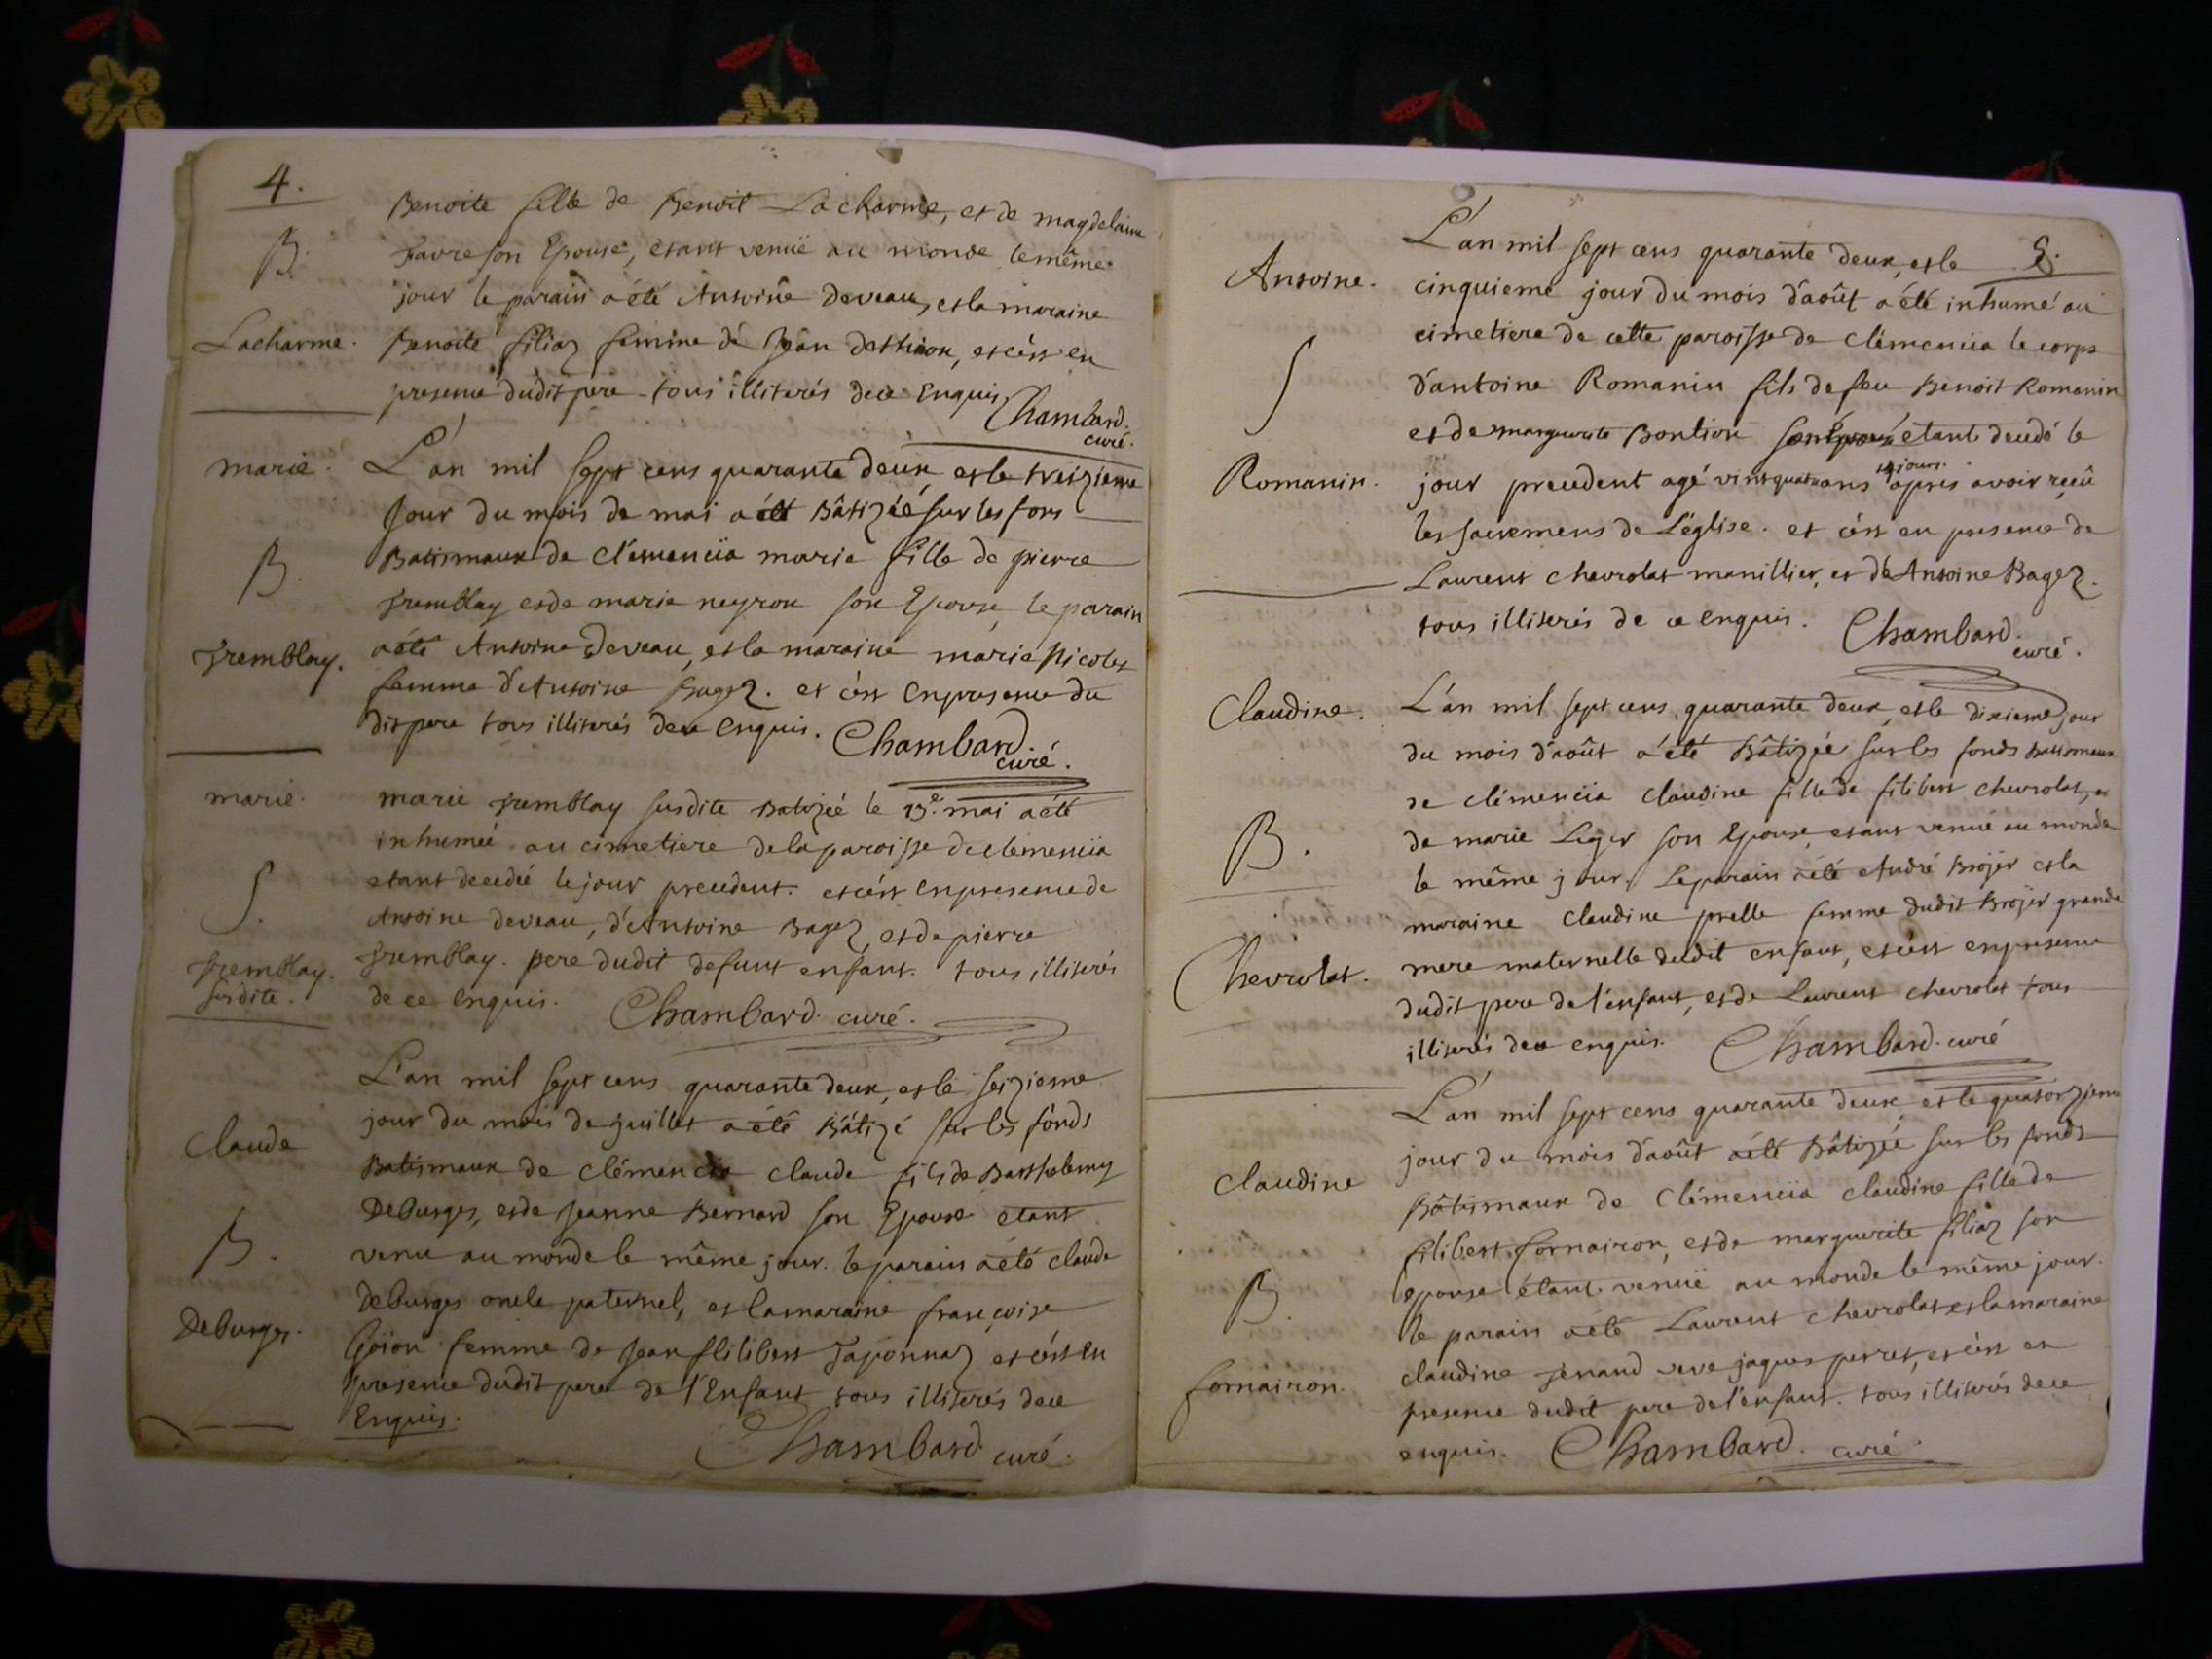 4.
Benoite fille de Benoit Lacharme, et de magdelaine
B.
favre son Epouse, etant venuë au monde le même
jour le parain a été Antoine Deveau, et la maraine
Lacharme.
Benoite filiaz femme de Jean , et c'est en
presence dudit pere tous illiterés de ce Enquis
Chambard.
curé.
marie.
L'an mil sept cens quarante deux, et le treizieme
Jour du mois de mai a été Bâtizéé sur les fons
B
Batismaux de Clémencia marie fille de pierre
tremblay et de marie neyron son Epouse, le parain
tremblay.
a été Antoine Deveau, et la maraine marie Nicolet
femme d'Antoine Bagez. et c'est en presence du
dit pere tous illiterés de ce Enquis.
Chambard.
curé.
marie.
marie tremblay susdite Batizéé le 13e. mai a été
inhumeé au cimetiere de la paroisse de clemencia
S.
etant decedéé le jour precedent. et c'est en presence de
Antoine deveau, d'Antoine Bagez, et de pierre
tremblay.
susdite.
tremblay. pere dudit defunt enfant. tous illiterés
de ce Enquis. Chambard. curé.
L'an mil sept cens quarante deux, et le seizieme
Claude
jour du mois de juillet a été Bâtizé sur les fonds
Batismaux de Clémencia Claude fils de Barthelemy
Deburges, et de Jeanne Bernard son Epouse etant
B.
venu au monde le même jour. le parain a été claude
Deburges.
Deburges oncle paternel, et la maraine françoise
Goïon femme de Jean filibert Taponnaz et c'est en
presence dudit pere de l'Enfant tous illiterés de ce
Enquis.
Chambard curé.
5.
Antoine.
L'an mil sept cens quarante deux, et le
cinquieme jour du mois d'août a été inhumé au
S
cimetiere de cette paroisse de Clémencia le corps
d'antoine Romanin fils de feu Benoit Romanin
et de marguerite Bontion étant decedé le
14 jours.
Romanin.
jour precedent agé vintquatre ans après avoir reçû
les sacremens de L'église. et c'est en presence de
Laurent Chevrolat manillier, et d'Antoine Bagez.
tous illiterés de ce enquis. Chambard.
curé.
Claudine.
L'an mil sept cens quarante deux, et le dixieme jour
du mois d'août a été Bâtizée sur les fonds Batismaux
de clémencia Claudine fille de filibert Chevrolat, et
B.
de marie Leger son Epouse, etant venue au monde
le même jour. Le parain a été André Broyer et la
maraine Claudine prelle femme dudit Broyer grande
Chevrolat.
mere maternelle dudit enfant, et c'est en presence
dudit pere de l'enfant, et de Laurent chevrolat tous
illiterés de ce enquis. Chambard. curé
L'an mil sept cens quarante deux, et le quatorzieme
Claudine
jour du mois d'août a été Bâtizéé sur les fonds
Bâtismaux de Clémencia Claudine fille de
filibert fornairon, et de marguerite filiaz son
B.
epouse étant venuë au monde le même jour.
le parain a été Laurent chevrolat et la maraine
fornairon.
claudine jenand veve jaques perret, et c'est en
presence dudit pere de l'enfant. tous illiterés de ce
enquis. Chambard. curé